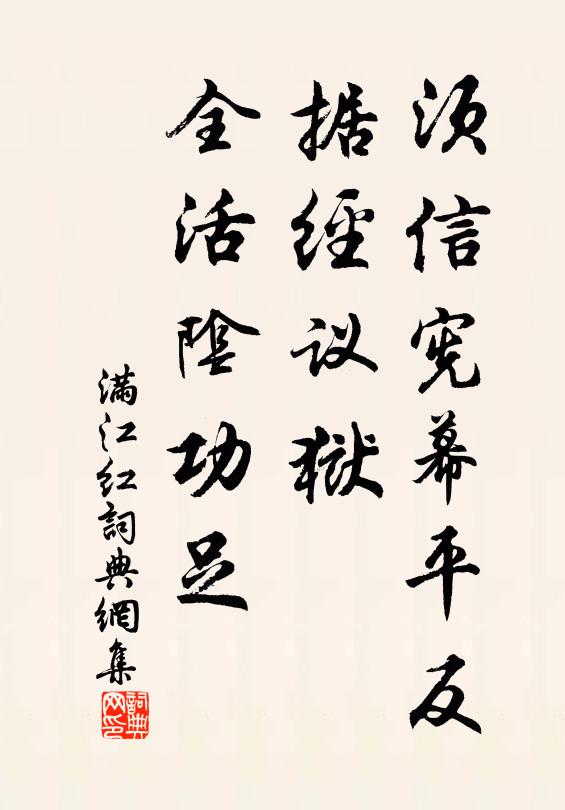 须信宪幕平反
据經议獄
全活陰功足
满江红詞典網集
詞典网印